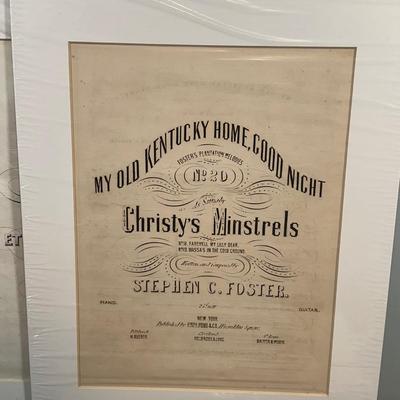 MY OLD KENTUCKY HOME, GOOD NIGHT
FOSTER'S PLANTATION MELODIES
No. 20
As Sung by
Christy's Minstrels
No 18. FAREWELL MY LILLY DEAR.
No 19. MASSA'S IN THE COLD GROUND.
Written and Composed by
STEPHEN C. FOSTER.
PIANO. GUITAR.
NEW YORK
Published by FIRTH, POND & CO. 1 Franklin Square.
Pittsburgh Cleveland St. Louis
H. KLEBER HOLBROOK & LONG
ET